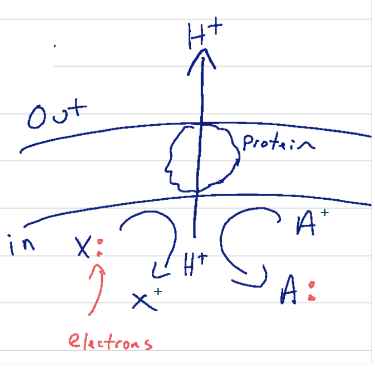 H⁺
Out
Protein
in
X:
H⁺
A⁺
X⁺
A:
electrons